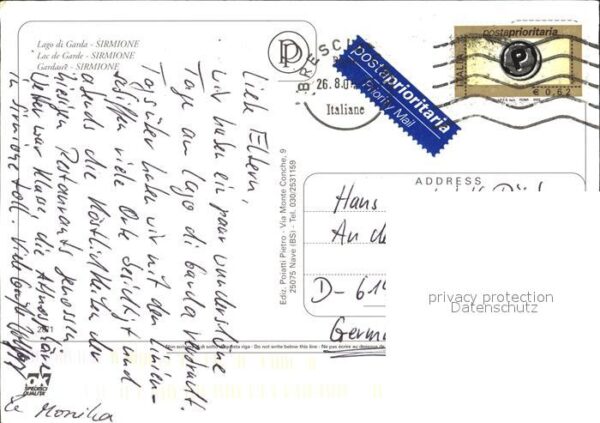 Lago di Garda - SIRMIONE
Lac de Garde - SIRMIONE
Gardasee - SIRMIONE
BRESCI
26.8.0
Italiane
postaprioritaria
Priority Mail
postaprioritaria
ITALIA
P
€ 0,62
Liebe Eltern,
wir haben ein paar wunderschöne
Tage am Lago di Garda verbracht.
Tagsüber haben wir mit den Linien-
schiffen viele Orte besichtigt und
abends die Köstlichkeiten der
hiesigen Restaurants genossen
Wetter war klasse, die Atmosphäre
in Sirmione toll. Viele
& Monika
2871
SPECIFICI
QUALITÀ
Ediz. Poiatti Pietro - Via Monte Conche, 9
25075 Nave (BS) - Tel. 030/2531159
ADDRESS
Hans
An de
D-614
Germ
privacy protection
Datenschutz
Non scrivere sotto questa riga - Do not write below this line - Ne pas écrire au dessous de